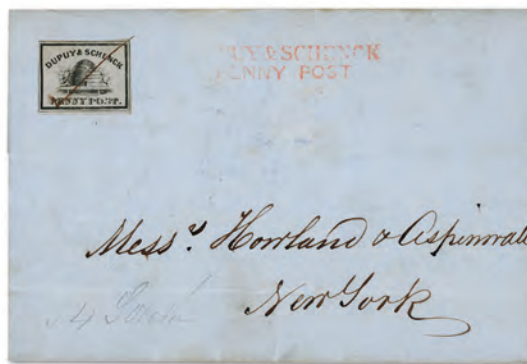 DUPUY & SCHENCK
PENNY POST.
PUY & SCHENCK
PENNY POST
Messrs. Howland & Aspinwall
New York